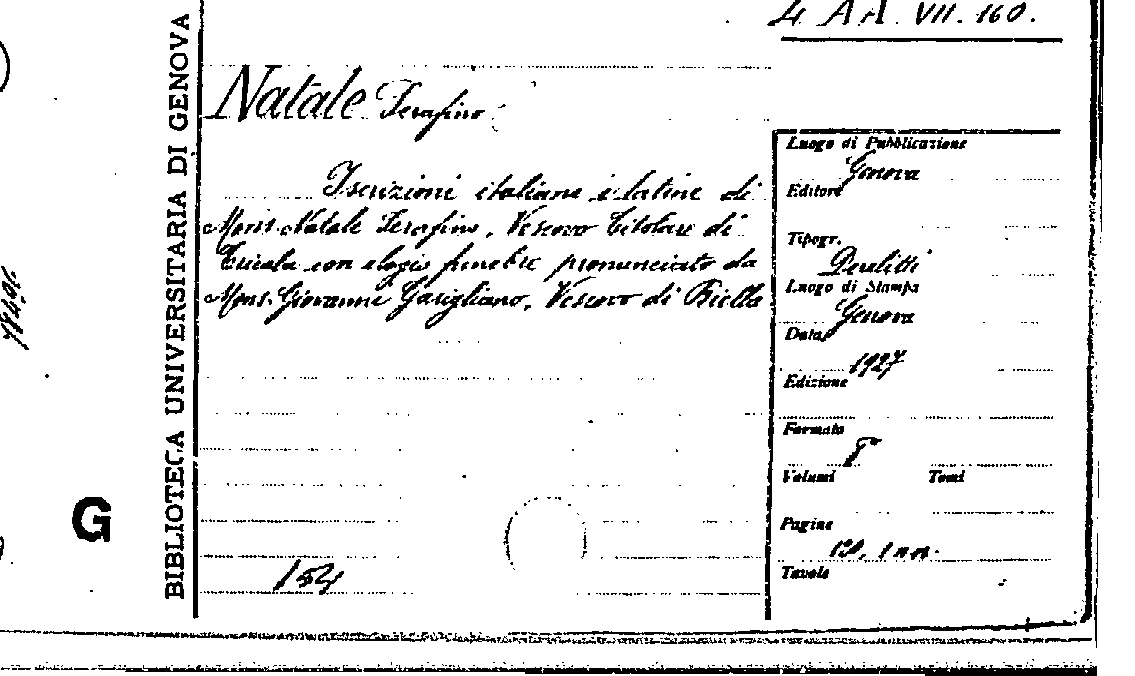 4 AA. VII. 160.
BIBLIOTECA UNIVERSITARIA DI GENOVA
Natale Serafino
Iscrizioni italiane e latine di
Mons. Natale Serafino, Vescovo Titolare di
Tricala con elogio funebre pronunciato da
Mons. Giovanni Garigliano, Vescovo di Biella
154
Luogo di Pubblicazione
Genova
Editore
Tipogr.
Derelitti
Luogo di Stampa
Genova
Data
1927
Edizione
Formato
8°
Volumi Tomi
Pagine
120, 1 nn.
Tavole
G